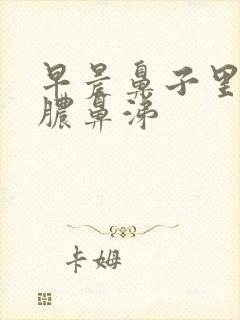 早晨鼻子里
脓鼻涕
卡姆